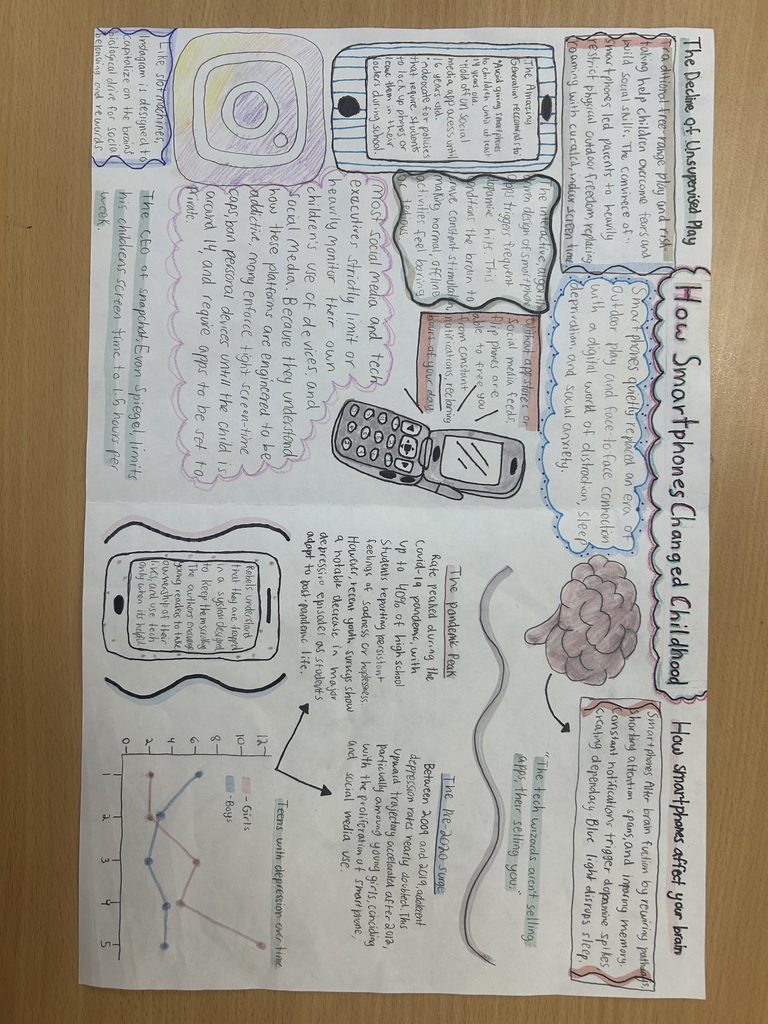 How Smartphones Changed Childhood
The Decline of Unsupervised Play
Traditional free-range play and risk
taking help children overcome fears and
build social skills. The commerce of
smartphones led parents to heavily
restrict physical outdoor freedom, replacing
roaming with curated, indoor screen time
Smartphones quietly replaced an era of
outdoor play and face to face connection
with a digital world of distraction, sleep
deprivation, and social anxiety.
How smartphones affect your brain
Smartphones Alter brain fuction by rewiring pathways,
shorting attention spans, and impairing memory.
Constant notifarcations trigger dopamine spikes
creating dependacy Blue light disrups sleep.
The Amazing
Generation reccomends to
Avoid giving smartphones
to children until at least
14 years old.
Hold off on social
media app access until
16 years old.
Advocate for policies
that require students
to lock up phones or
leave them in their
lockers during school
The interactive, algorithm
driven design of smartphone
apps triggers frequent
dopamine hits. This
conditions the brain to
crave constant stimulation
making normal, offline
activities feel boring
or tedious.
Without app stores or
social media feeds,
flip phones are
able to free you
from constant
notifications, reclaiming
hours of your day.
Like slot machines,
Instagram is designed to
capitalize on the brains
biological drive for social
belonging and rewards
Most social media and tech
executives strictly limit or
heavily monitor their own
children's use of devices and
Social Media. Because they understand
how these platforms are engineered to be
addictive, many enforce tight screen-time
caps, ban personal devices untill the child is
around 14, and require apps to be set to
private.
The CEO of snapchat, Evan Spiegel, limits
his childrens screen time to 1.5 hours per
week.
"The tech wizards aren't selling
apps, their selling you."
The pandemic Peak
Rate peaked during the
Covid-19 pandemic, with
up to 40% of high school
Students reporting persistant
feelings of sadness or hoplesness.
However, recent youth surveys show
a notable decrease in major
depressive episodes as students
adapt to post-pandemic life.
The Pre-2020 surge
Between 2009 and 2019, adolecent
depression rates nearly doubled. This
upward trajectory accelorated after 2012,
particularly amoung young girls, conciding
with the proliferation of smartphone,
and social media use.
Rebels understand
that they are trapped
in a system designed
to keep them scrolling
The authors encourage
young readers to take
ownership of their
lives, and use tech
only when its helpful
Teens with depression over time
- Girls
- Boys
12
10
8
6
4
2
0
1 2 3 4 5